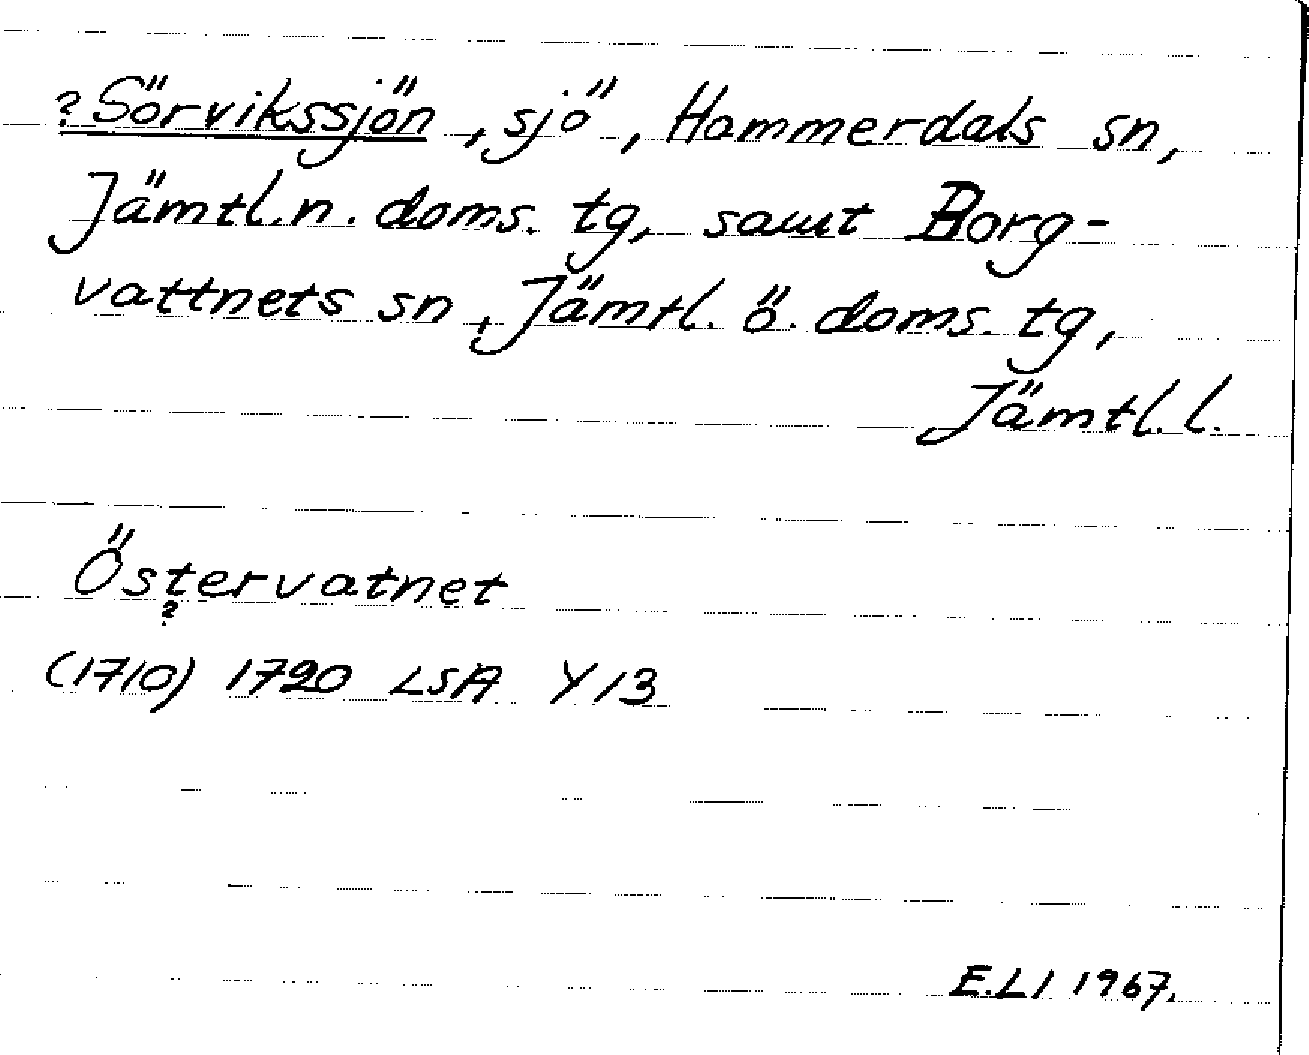 ?Sörvikssjön, sjö, Hammerdals sn,
Jämtl.n. doms. tg, samt Borg-
vattnets sn, Jämtl. ö. doms. tg,
Jämtl. l.
Östervatnet
?
(1710) 1720 LSA Y 13
E.LI 1967.